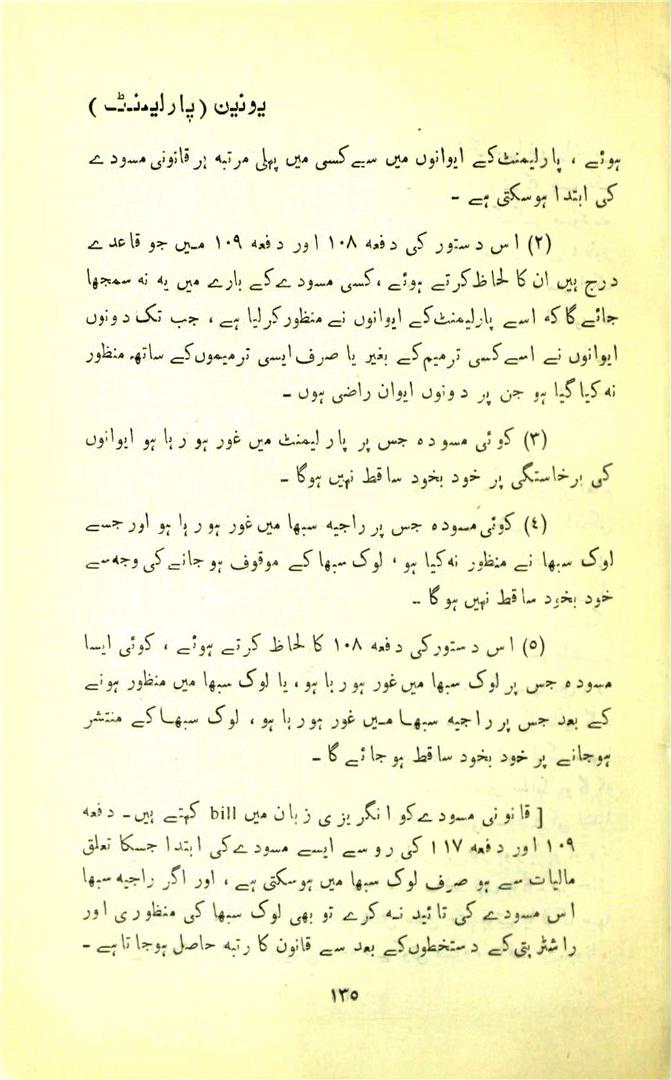 یونین (پارلیمنٹ)
ہوئے ، پارلیمنٹ کے ایوانوں میں سے کسی میں پہلی مرتبہ ہر قانونی مسودے
کی ابتدا ہوسکتی ہے ۔
(۲) اس دستور کی دفعہ ۱۰۸ اور دفعہ ۱۰۹ میں جو قاعدے
درج ہیں ان کا لحاظ کرتے ہوئے ، کسی مسودے کے بارے میں یہ نہ سمجھا
جائے گا کہ اسے پارلیمنٹ کے ایوانوں نے منظور کرلیا ہے ، جب تک دونوں
ایوانوں نے اسے کسی ترمیم کے بغیر یا صرف ایسی ترمیموں کے ساتھ منظور
نہ کیا گیا ہو جن پر دونوں ایوان راضی ہوں ۔
(۳) کوئی مسودہ جس پر پارلیمنٹ میں غور ہو رہا ہو ایوانوں
کی برخاستگی پر خود بخود ساقط نہیں ہوگا ۔
(٤) کوئی مسودہ جس پر راجیہ سبھا میں غور ہو رہا ہو اور جسے
لوک سبھا نے منظور نہ کیا ہو ، لوک سبھا کے موقوف ہو جانے کی وجہ سے
خود بخود ساقط نہیں ہو گا ۔
(٥) اس دستور کی دفعہ ۱۰۸ کا لحاظ کرتے ہوئے ، کوئی ایسا
مسودہ جس پر لوک سبھا میں غور ہو رہا ہو ، یا لوک سبھا میں منظور ہونے
کے بعد جس پر راجیہ سبھا میں غور ہو رہا ہو ، لوک سبھا کے منتشر
ہوجانے پر خود بخود ساقط ہو جائے گا ۔
[ قانونی مسودے کو انگریزی زبان میں bill کہتے ہیں ۔ دفعہ
۱۰۹ اور دفعہ ۱۱۷ کی رو سے ایسے مسودے کی ابتدا جسکا تعلق
مالیات سے ہو صرف لوک سبھا میں ہوسکتی ہے ، اور اگر راجیہ سبھا
اس مسودے کی تائید نہ کرے تو بھی لوک سبھا کی منظوری اور
راشٹرپتی کے دستخطوں کے بعد سے قانون کا رتبہ حاصل ہوجاتا ہے ۔
۱۳٥